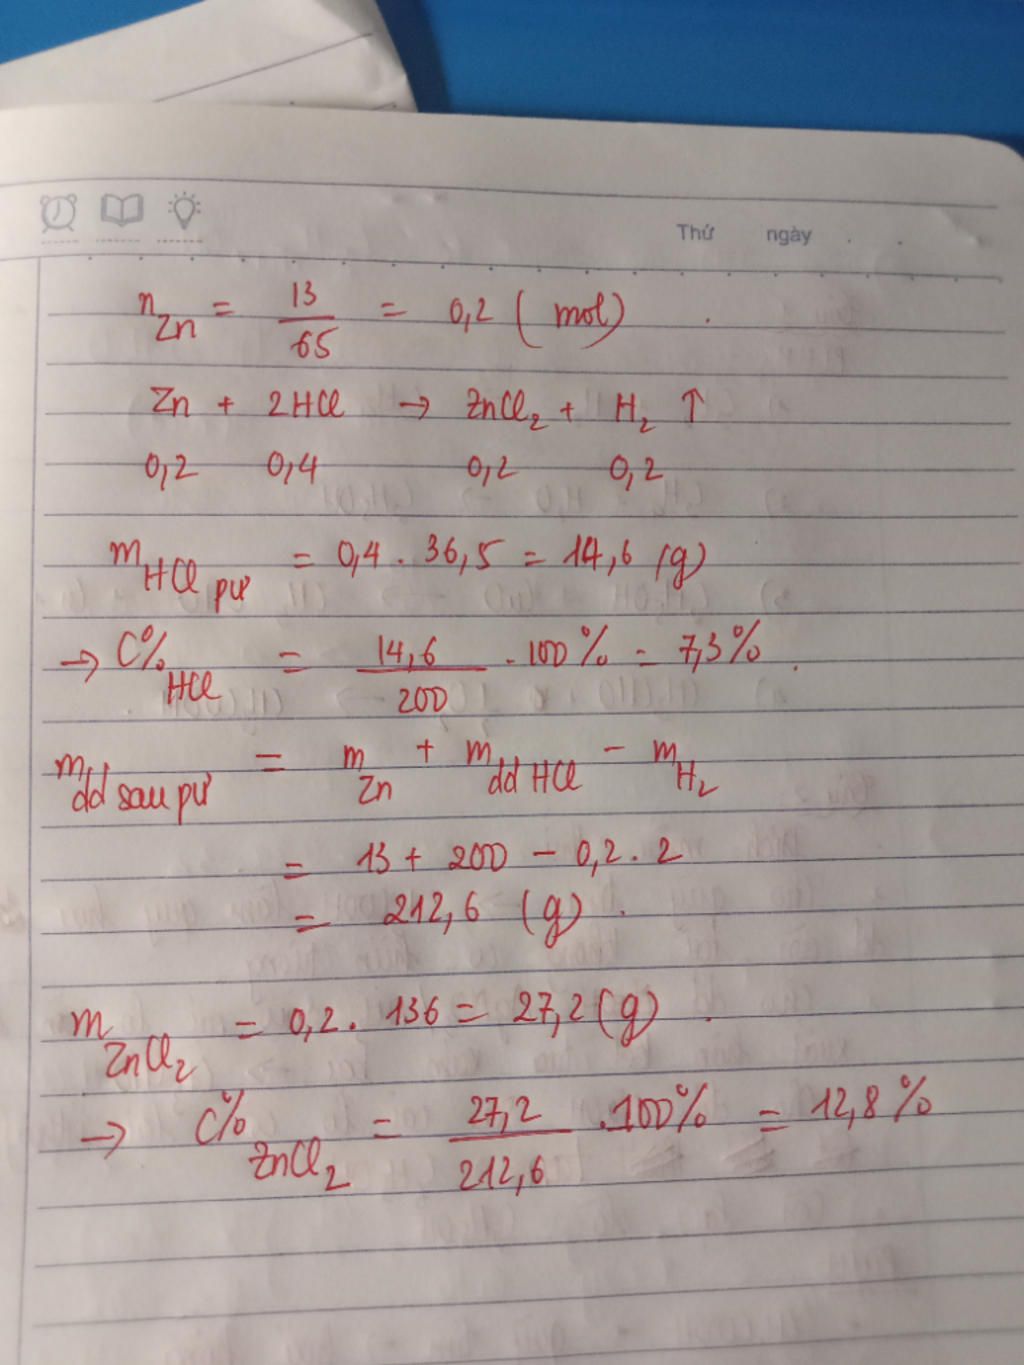 Thứ ngày
n Zn = 13/65 = 0,2 (mol)
Zn + 2HCl → ZnCl₂ + H₂ ↑
0,2 0,4 0,2 0,2
m HCl pư = 0,4 . 36,5 = 14,6 (g)
→ C% HCl = 14,6/200 . 100% = 7,3%.
m dd sau pư = m Zn + m dd HCl - m H₂
= 13 + 200 - 0,2 . 2
= 212,6 (g).
m ZnCl₂ = 0,2 . 136 = 27,2 (g).
→ C% ZnCl₂ = 27,2/212,6 . 100% = 12,8%